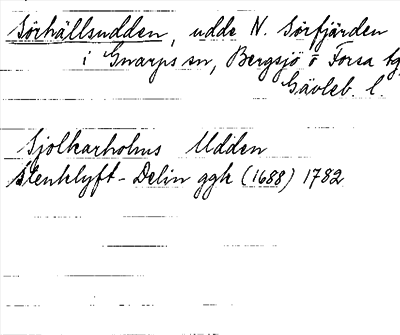 Sörhällsudden, udde N. Sörfjärden
i Gnarps sn, Bergsjö o Forsa tg,
Gävleb. l.
Sjölkarholms Udden
Stenklyft-Delin ggk (1688) 1782